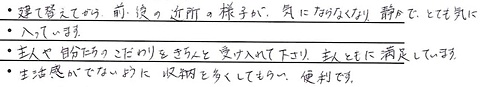 ・建て替えてから、前・後の近所の様子が、気にならなくなり、静かで、とても気に
・入っています。
・主人や自分たちのこだわりをきちんと受け入れて下さり、主人ともに満足しています。
・生活感がでないように収納を多くしてもらい、便利です。